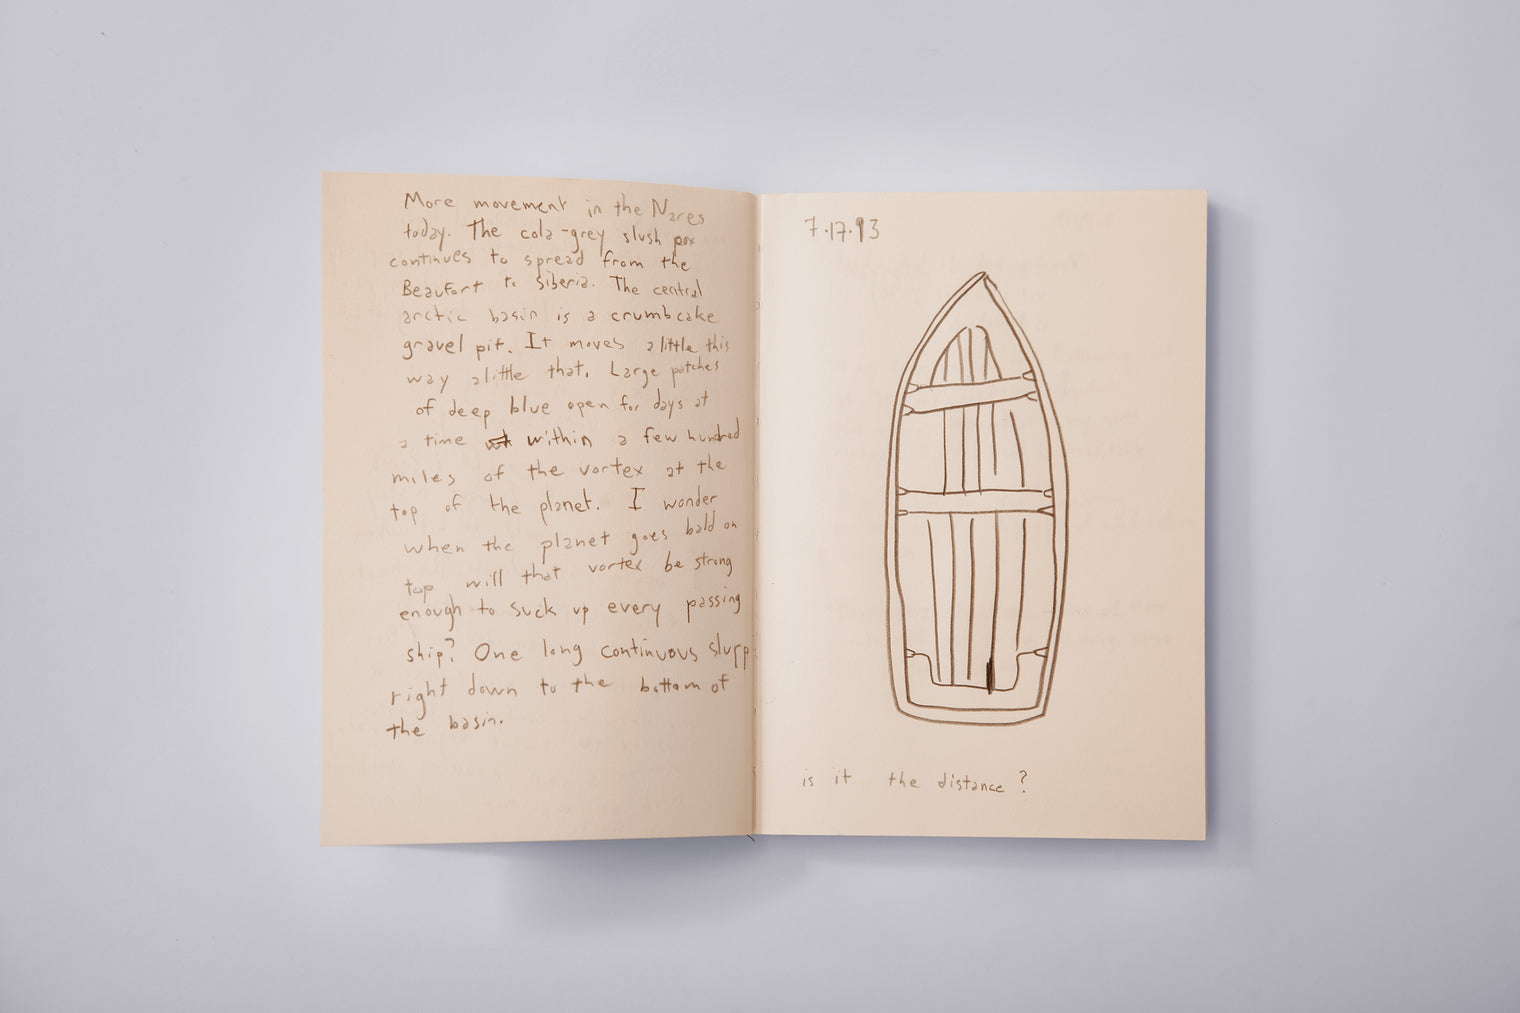 More movement in the Nares
today. The cola-grey slush pox
continues to spread from the
Beaufort to Siberia. The central
arctic basin is a crumbcake
gravel pit. It moves a little this
way a little that. Large patches
of deep blue open for days at
a time within a few hundred
miles of the vortex at the
top of the planet. I wonder
when the planet goes bald on
top will that vortex be strong
enough to suck up every passing
ship? One long continuous slurp
right down to the bottom of
the basin.
7.17.93
is it the distance?